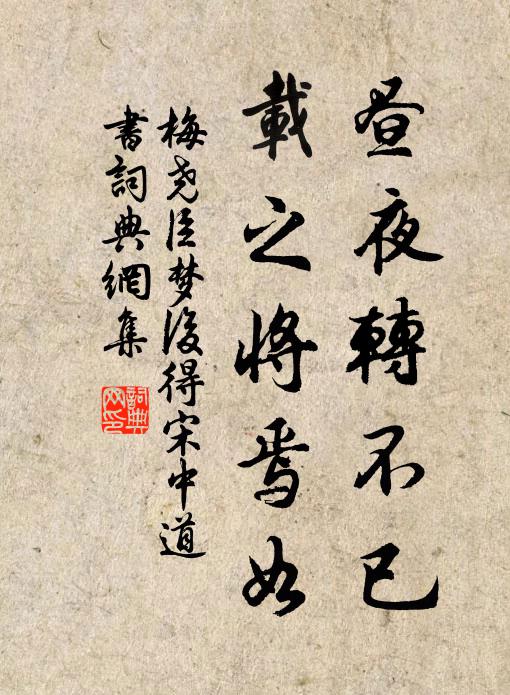 昼夜轉不已
載之將焉如
梅堯臣梦後得宋中道
書詞典網集
詞典网印